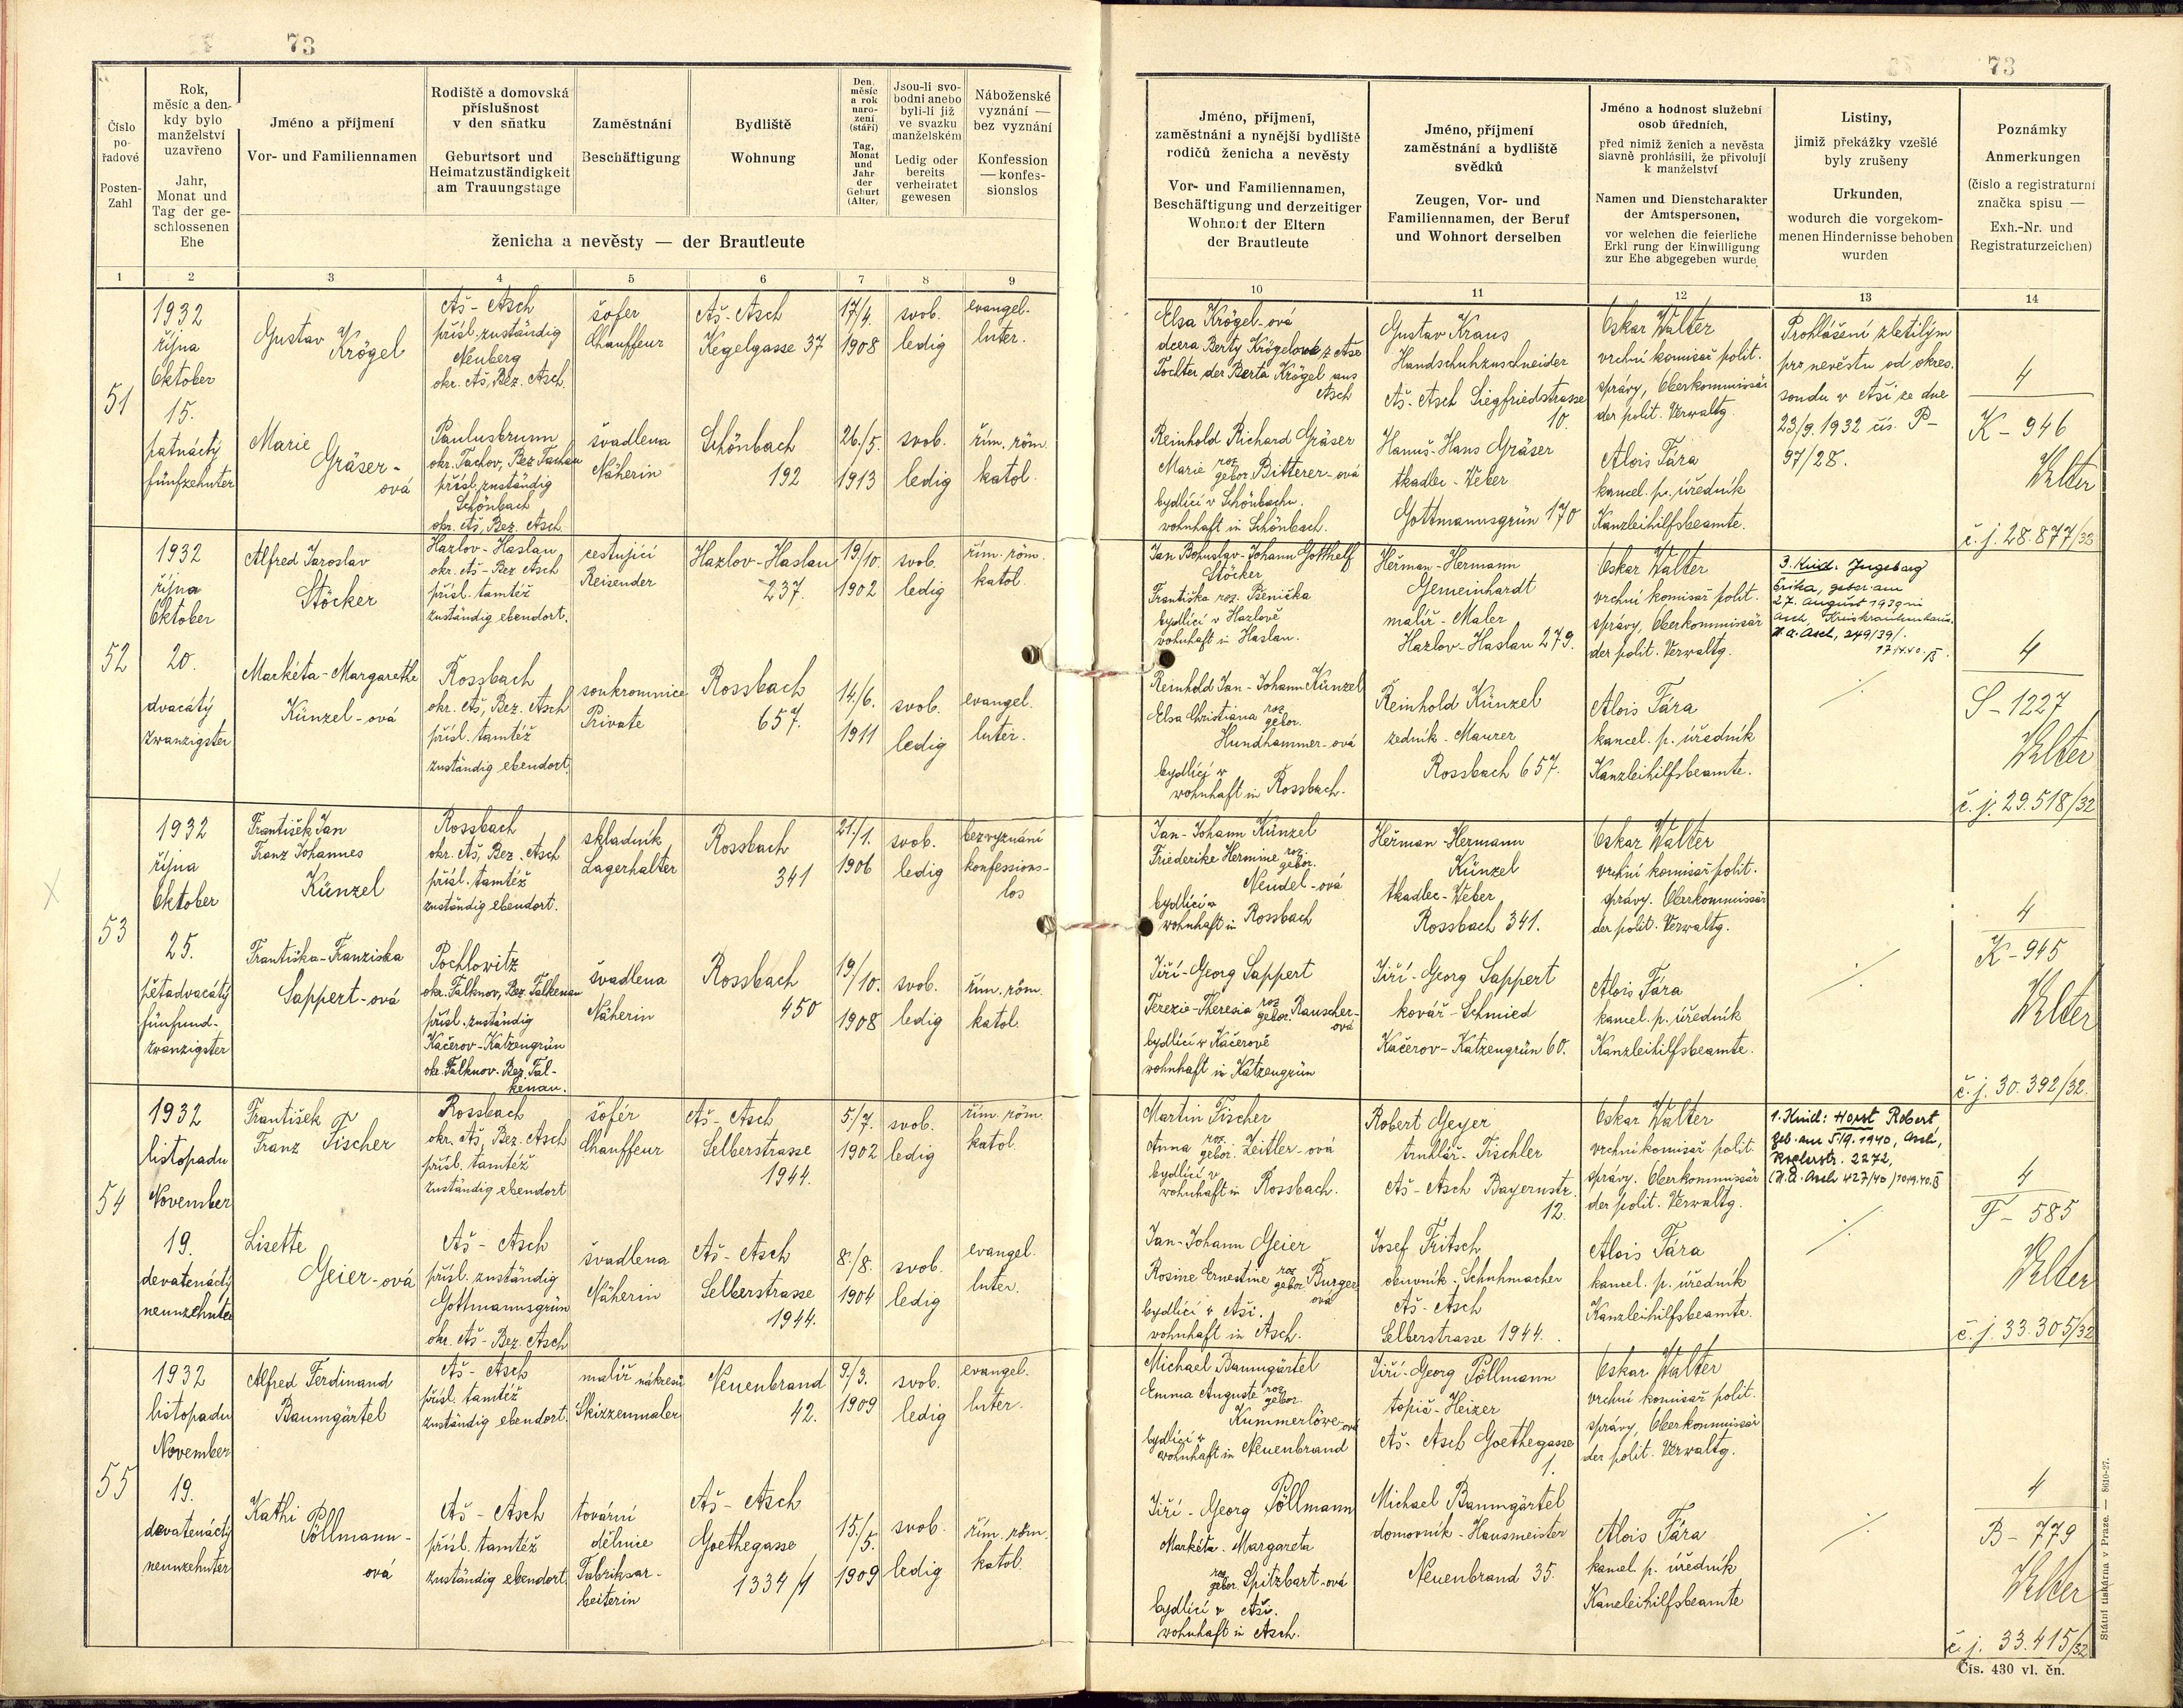 73
Číslo
po-
řadové
Posten-
Zahl
Rok,
měsíc a den-
kdy bylo
manželství
uzavřeno
Jahr,
Monat und
Tag der ge-
schlossenen
Ehe
Jméno a příjmení
Vor- und Familiennamen
Rodiště a domovská
příslušnost
v den sňatku
Geburtsort und
Heimatzuständigkeit
am Trauungstage
Zaměstnání
Beschäftigung
Bydliště
Wohnung
Den,
měsíc
a rok
naro-
zení
(stáří)
Tag,
Monat
und
Jahr
der
Geburt
(Alter)
Jsou-li svo-
bodni anebo
byli-li již
ve svazku
manželském
Ledig oder
bereits
verheiratet
gewesen
Náboženské
vyznání —
bez vyznání
Konfession
— konfes-
sionslos
ženicha a nevěsty — der Brautleute
1 2 3 4 5 6 7 8 9
51
1932
října
Oktober
15.
patnáctý
fünfzehnter
Gustav
Krögel
Aš - Asch
přísl. zuständig
Neuberg
okr. Aš, Bez. Asch.
šofer
Chauffeur
Aš - Asch
Kegelgasse 37
17/4.
1908
svob.
ledig
evangel.
luter.
Marie
Gräser-
ová
Paulusbrunn
okr. Tachov, Bez Tachau
přísl. zuständig
Schönbach
okr. Aš, Bez. Asch.
švadlena
Näherin
Schönbach
192
26./5.
1913
svob.
ledig
řím. röm.
katol.
52
1932
října
Oktober
20.
dvacátý
zwanzigster
Alfred Jaroslav
Stöcker
Hazlov - Haslau
okr. Aš - Bez Asch
přísl. tamtéž
zuständig ebendort.
cestující
Reisender
Hazlov - Haslau
237.
19/10.
1902
svob.
ledig
řím. röm.
katol.
Markéta - Margarethe
Künzel - ová
Rossbach
okr. Aš, Bez. Asch
přísl. tamtéž
zuständig ebendort.
soukromnice
Private
Rossbach
657.
14/6.
1911
svob.
ledig
evangel.
luter.
53
1932
října
Oktober
25.
pětadvacátý
fünfund-
zwanzigster
František Jan
Franz Johannes
Künzel
Rossbach
okr. Aš, Bez. Asch
přísl. tamtéž
zuständig ebendort.
skladník
Lagerhalter
Rossbach
341
21./1.
1906
svob.
ledig
bezvyznání
konfessions-
los
Františka - Franziska
Sappert - ová
Pochlowitz
okr. Falknov, Bez. Falkenau
přísl. zuständig
Kačerov - Katzengrün
okr. Falknov. Bez. Fal-
kenau.
švadlena
Näherin
Rossbach
450
19/10.
1908
svob.
ledig
řím. röm.
katol.
54
1932
listopadu
November
19.
devatenáctý
neunzehnter
František
Franz Fischer
Rossbach
okr. Aš, Bez. Asch
přísl. tamtéž
zuständig ebendort
šofér
Chauffeur
Aš - Asch
Selberstrasse
1944.
5/7.
1902
svob.
ledig
řím. röm.
katol.
Lisette
Geier - ová
Aš - Asch
přísl. zuständig
Gottmannsgrün
okr. Aš - Bez. Asch
švadlena
Näherin
Aš - Asch
Selberstrasse
1944.
8./8.
1904
svob.
ledig
evangel.
luter.
55
1932
listopadu
November
19.
devatenáctý
neunzehnter
Alfred Ferdinand
Baumgärtel
Aš - Asch
přísl. tamtéž
zuständig ebendort.
malíř nákresů
Skizzenmaler
Neuenbrand
42.
9./3.
1909
svob.
ledig
evangel.
luter.
Kathi
Pöllmann -
ová
Aš - Asch
přísl. tamtéž
zuständig ebendort
tovární
dělnice
Fabriksar-
beiterin
Aš - Asch
Goethegasse
1334/1
15./5.
1909
svob.
ledig
řím. röm.
katol.
73
Jméno, příjmení,
zaměstnání a nynější bydliště
rodičů ženicha a nevěsty
Vor- und Familiennamen,
Beschäftigung und derzeitiger
Wohnort der Eltern
der Brautleute
Jméno, příjmení
zaměstnání a bydliště
svědků
Zeugen, Vor- und
Familiennamen, der Beruf
und Wohnort derselben
Jméno a hodnost služební
osob úředních,
před nimiž ženich a nevěsta
slavně prohlásili, že přivolují
k manželství
Namen und Dienstcharakter
der Amtspersonen,
vor welchen die feierliche
Erkl rung der Einwilligung
zur Ehe abgegeben wurde
Listiny,
jimiž překážky vzešlé
byly zrušeny
Urkunden,
wodurch die vorgekom-
menen Hindernisse behoben
wurden
Poznámky
Anmerkungen
(číslo a registraturní
značka spisu —
Exh.-Nr. und
Registraturzeichen)
10 11 12 13 14
Elsa Krögel - ová
dcera Berty Krögelové z Aše
Tochter der Berta Krögel aus
Asch
Gustav Kraus
Handschuhzuschneider
Aš - Asch Siegfriedstrasse
10.
Oskar Walter
vrchní komisař polit.
správy, Oberkommissär
der polit. Verwaltg.
Prohlášení zletilým
pro nevěstu od okres.
soudu v Aši ze dne
23/9. 1932 čís. P-
97/28.
4
K - 946
Walter
č. j. 28.877/33
Reinhold Richard Gräser
Marie roz. gebor. Bitterer - ová
bydlící v Schönbachu.
wohnhaft in Schönbach.
Hanuš - Hans Gräser
tkadlec - Weber
Gottmannsgrün 170
Alois Fára
kancel. p. úředník
Kanzleihilfsbeamte.
Jan Bohuslav - Johann Gotthelf
Stöcker
Františka roz. Pšenička
bydlící v Hazlově
wohnhaft in Haslau.
Heřman - Hermann
Gemeinhardt
malíř - Maler
Hazlov - Haslau 279.
Oskar Walter
vrchní komisař polit.
správy, Oberkommissär
der polit. Verwaltg.
3. Kind: Ingeborg
Erika, gebor. am
27. August 1939 in
Asch, Kreiskrankenhaus.
4
S - 1227
Walter
č. j. 29.518/32
Reinhold Jan - Johann Künzel
Elsa Christiana roz. gebor.
Hundhammer - ová
bydlící v
wohnhaft in Rossbach.
Reinhold Künzel
zedník - Maurer
Rossbach 657.
Alois Fára
kancel. p. úředník
Kanzleihilfsbeamte.
Jan - Johann Künzel
Friederike Hermine roz. gebor.
Neudel - ová
bydlící v
wohnhaft in Rossbach
Heřman - Hermann
Künzel
tkadlec - Weber
Rossbach 341.
Oskar Walter
vrchní komisař polit.
správy. Oberkommissär
der polit. Verwaltg.
4
K - 945
Walter
č. j. 30.392/32.
Jiří - Georg Sappert
Terezie - Theresia roz. gebor. Rauscher-
ová
bydlící v Kačerově
wohnhaft in Katzengrün
Jiří - Georg Sappert
kovář - Schmied
Kačerov - Katzengrün 60.
Alois Fára
kancel. p. úředník
Kanzleihilfsbeamte.
Martin Fischer
Anna roz. gebor. Zeitler - ová
bydlící v
wohnhaft in Rossbach.
Robert Geyer
truhlář - Tischler
Aš - Asch Bayernstr.
12.
Oskar Walter
vrchní komisař polit.
správy. Oberkommissär
der polit. Verwaltg.
1. Kind: Horst Robert
geb. am 5/9. 1940, Asch,
2272,
4
F - 585
Walter
č. j. 33.305/32
Jan - Johann Geier
Rosine Ernestine roz. gebor. Burger
ová
bydlící v Aši.
wohnhaft in Asch.
Josef Fritsch
obuvník - Schuhmacher
Aš - Asch
Selberstrasse 1944.
Alois Fára
kancel. p. úředník
Kanzleihilfsbeamte.
Michael Baumgärtel
Emma Auguste roz. gebor.
Kummerlöwe - ová
bydlící v
wohnhaft in Neuenbrand
Jiří - Georg Pöllmann
topič - Heizer
Aš - Asch Goethegasse
1.
Oskar Walter
vrchní komisař polit.
správy, Oberkommissär
der polit. Verwaltg.
4
B - 779
Walter
č. j. 33.415/32
Jiří - Georg Pöllmann
Markéta - Margareta
roz. gebor. Spitzbart - ová
bydlící v Aši.
wohnhaft in Asch.
Michael Baumgärtel
domovník - Hausmeister
Neuenbrand 35.
Alois Fára
kancel. p. úředník
Kanzleihilfsbeamte
Státní tiskárna v Praze. — 8610-27.
Čís. 430 vl. čn.